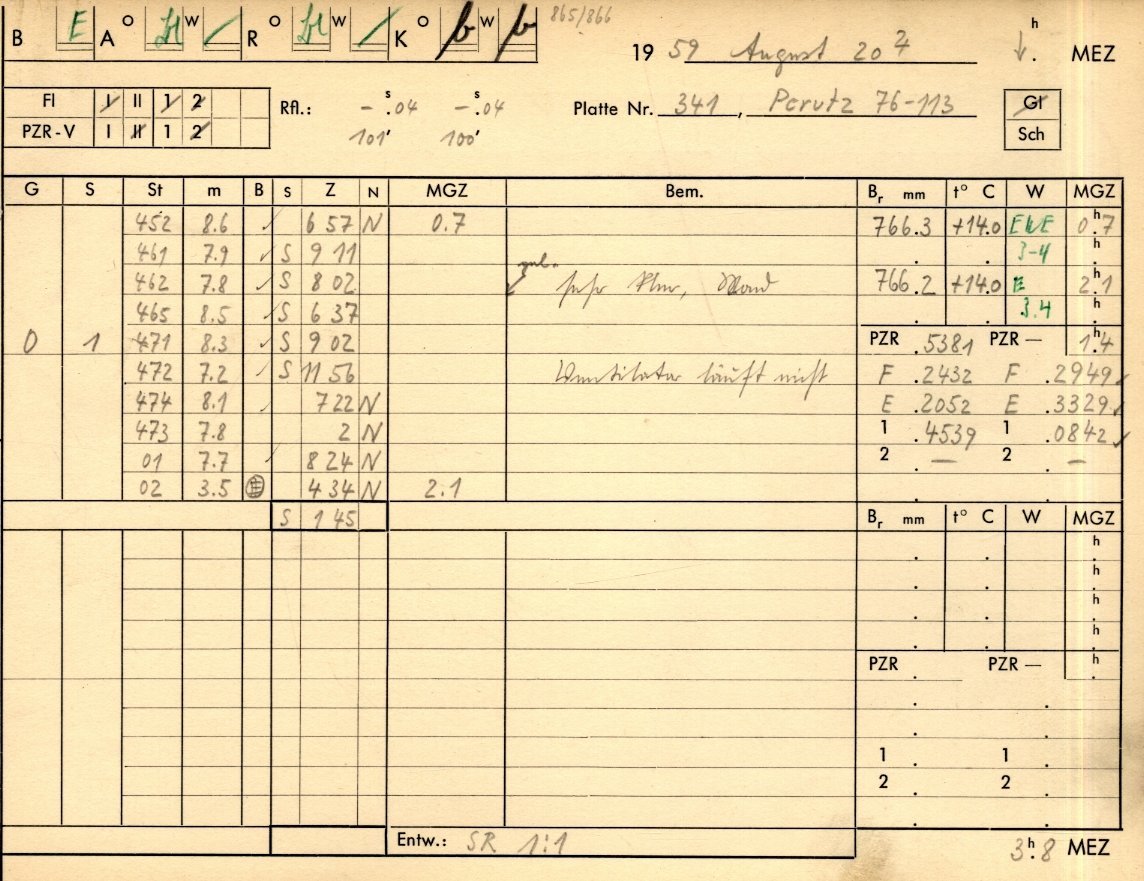 865/866
B E A O W R O W K O b W b
19 59 August 20 h . MEZ
Fl I II 1 2 Rfl.: - s.04 - s.04 Platte Nr. 341, Perutz 76-113 Gl
PZR-V I II 1 2 101' 100' Sch
G S St m B S Z N MGZ Bem. Br mm t° C W MGZ
452 8.6 ✓ 6 57 N 0.7 766.3 +14.0 0h.7
461 7.9 ✓ S 9 11 3-4 h
462 7.8 ✓ S 8 02 sehr klar, Mond 766.2 +14.0 E 2h.1
465 8.5 ✓ S 6 37 3.4 h
0 1 471 8.3 ✓ S 9 02 PZR .5381 PZR — 1h.4
472 7.2 ✓ S 11 56 Ventilator läuft nicht F .2432 F .2949 ✓
474 8.1 ✓ 7 22 N E .2052 E .3329 ✓
473 7.8 2 N 1 .4539 1 .0842 ✓
01 7.7 ✓ 8 24 N 2 . — 2 —
02 3.5 4 34 N 2.1
S 1 45 Br mm t° C W MGZ
h
h
h
h
PZR . PZR — h
1 . 1 .
2 . 2 .
Entw.: SR 1:1
3h.8 MEZ